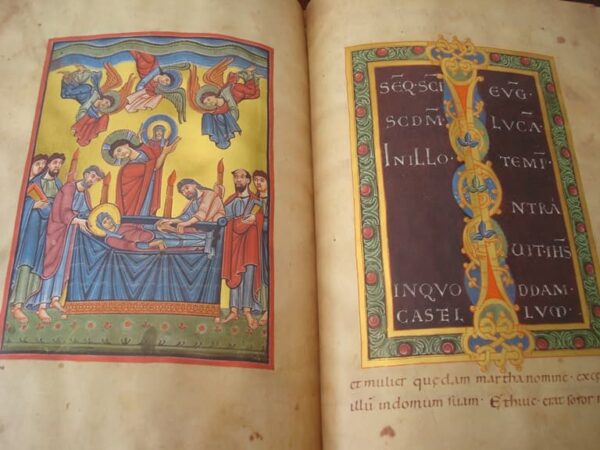 SEQ̄·SCI EVḠ·
SCDM̄· LVCA·
INILLO· TEMP̄
NTRA
UIT·IH̄S
INQVO DDAM
CASTEL LUM·
et mulier quędam marthanomine· excę
illū indomum suam· Ethuic· erat soror